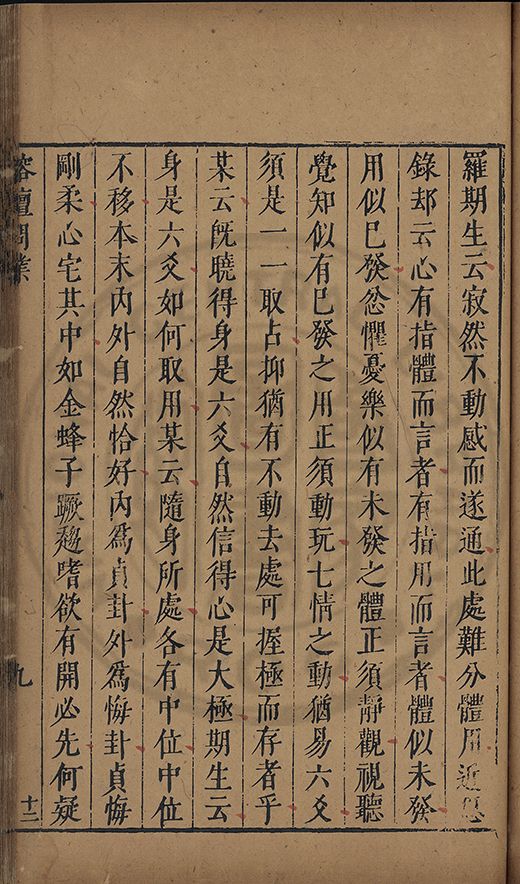 羅期生云寂然不動感而遂通此處難分體用近思
錄却云心有指體而言者有指用而言者體似未發
用似已發忿懼憂樂似有未發之體正須靜觀視聽
覺知似有已發之用正須動玩七情之動猶易六爻
須是一一取占抑猶有不動去處可握極而存者乎
某云既曉得身是六爻自然信得心是大極期生云
身是六爻如何取用某云隨身所處各有中位中位
不移本末內外自然恰好內爲貞卦外爲悔卦貞悔
剛柔心宅其中如金蜂子蹶趨嗜欲有開必先何疑
榕壇問業
九
十二